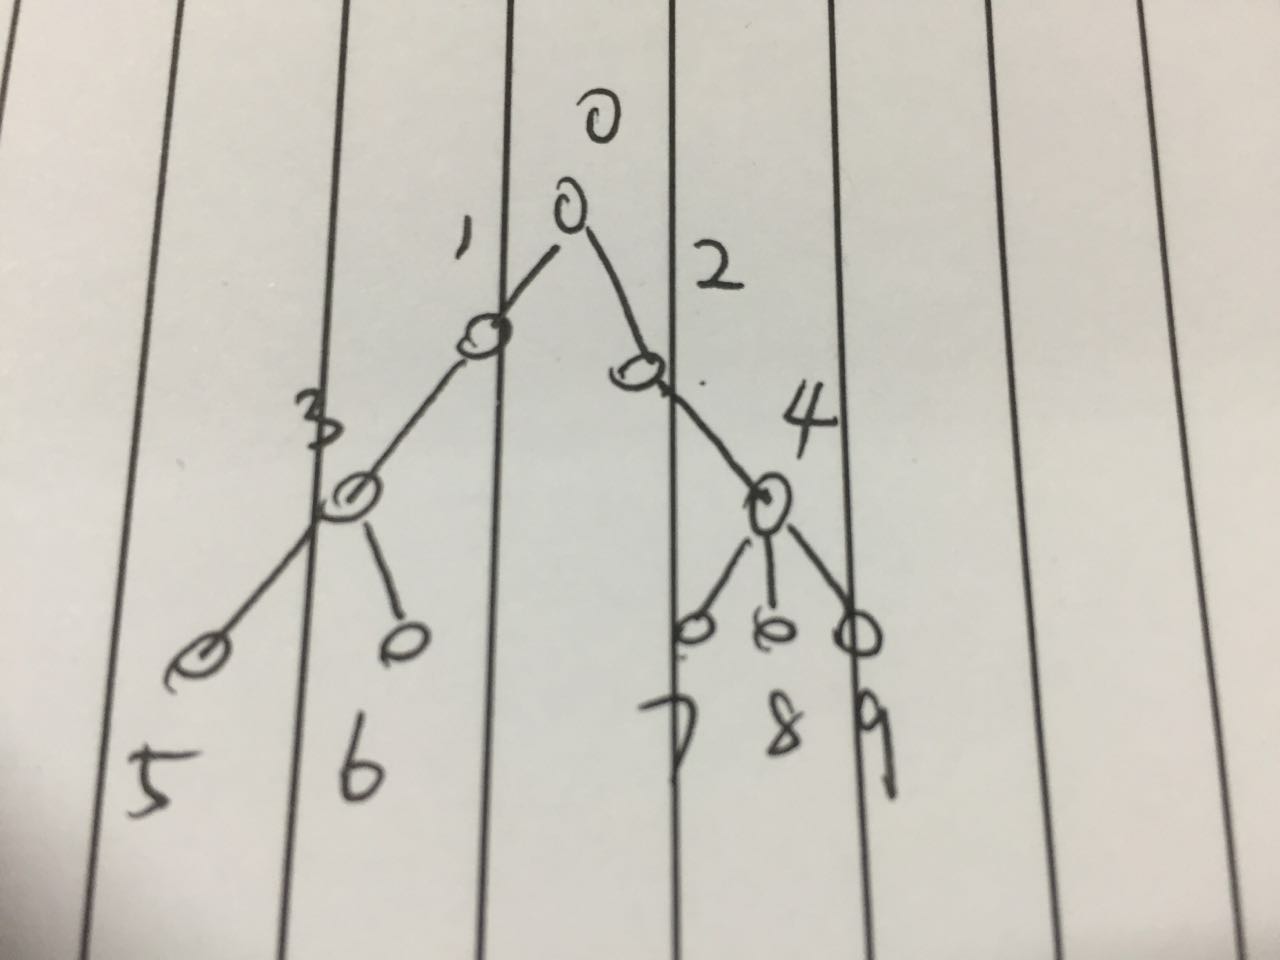 0
1 2
3 4
5 6 7 8 9